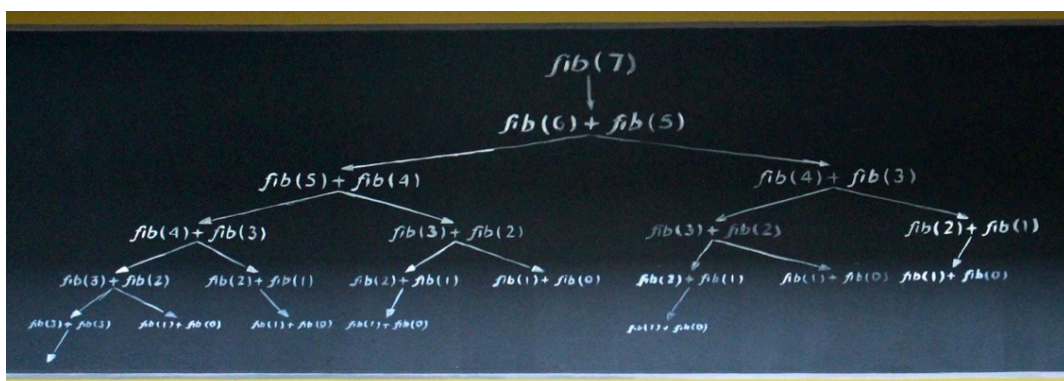 fib(7)
fib(6) + fib(5)
fib(5) + fib(4) fib(4) + fib(3)
fib(4) + fib(3) fib(3) + fib(2) fib(3) + fib(2) fib(2) + fib(1)
fib(3) + fib(2) fib(2) + fib(1) fib(2) + fib(1) fib(1) + fib(0) fib(2) + fib(1) fib(1) + fib(0) fib(1) + fib(0)
fib(1) + fib(0) fib(1) + fib(0) fib(1) + fib(0) fib(1) + fib(0)